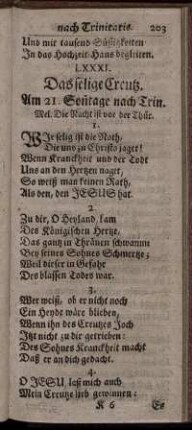 nach Trinitatis. 203
Und mit tausend Süßigkeiten
In das Hochzeit-Haus begleiten.
LXXXI.
Das selige Creutz.
Am 21. Soñtage nach Trin.
Mel. Die Nacht ist vor der Thür.
1.
WIe selig ist die Noth,
Die uns zu Christo jaget!
Wenn Kranckheit und der Todt
Uns an den Hertzen naget,
So weiß man keinen Rath,
Als den, den JESUS hat.
2.
Zu dir, O Heyland, kam
Des Königischen Hertze,
Das gantz in Thränen schwamm
Bey seines Sohnes Schmertze;
Weil dieser in Gefahr
Des blassen Todes war.
3.
Wer weiß, ob er nicht noch
Ein Heyde wäre blieben,
Wenn ihn des Creutzes Joch
Itzt nicht zu dir getrieben:
Des Sohnes Kranckheit macht
Daß er an dich gedacht.
4.
O JESU, laß mich auch
Mein Creutze lieb gewinnen:
K 6 Es